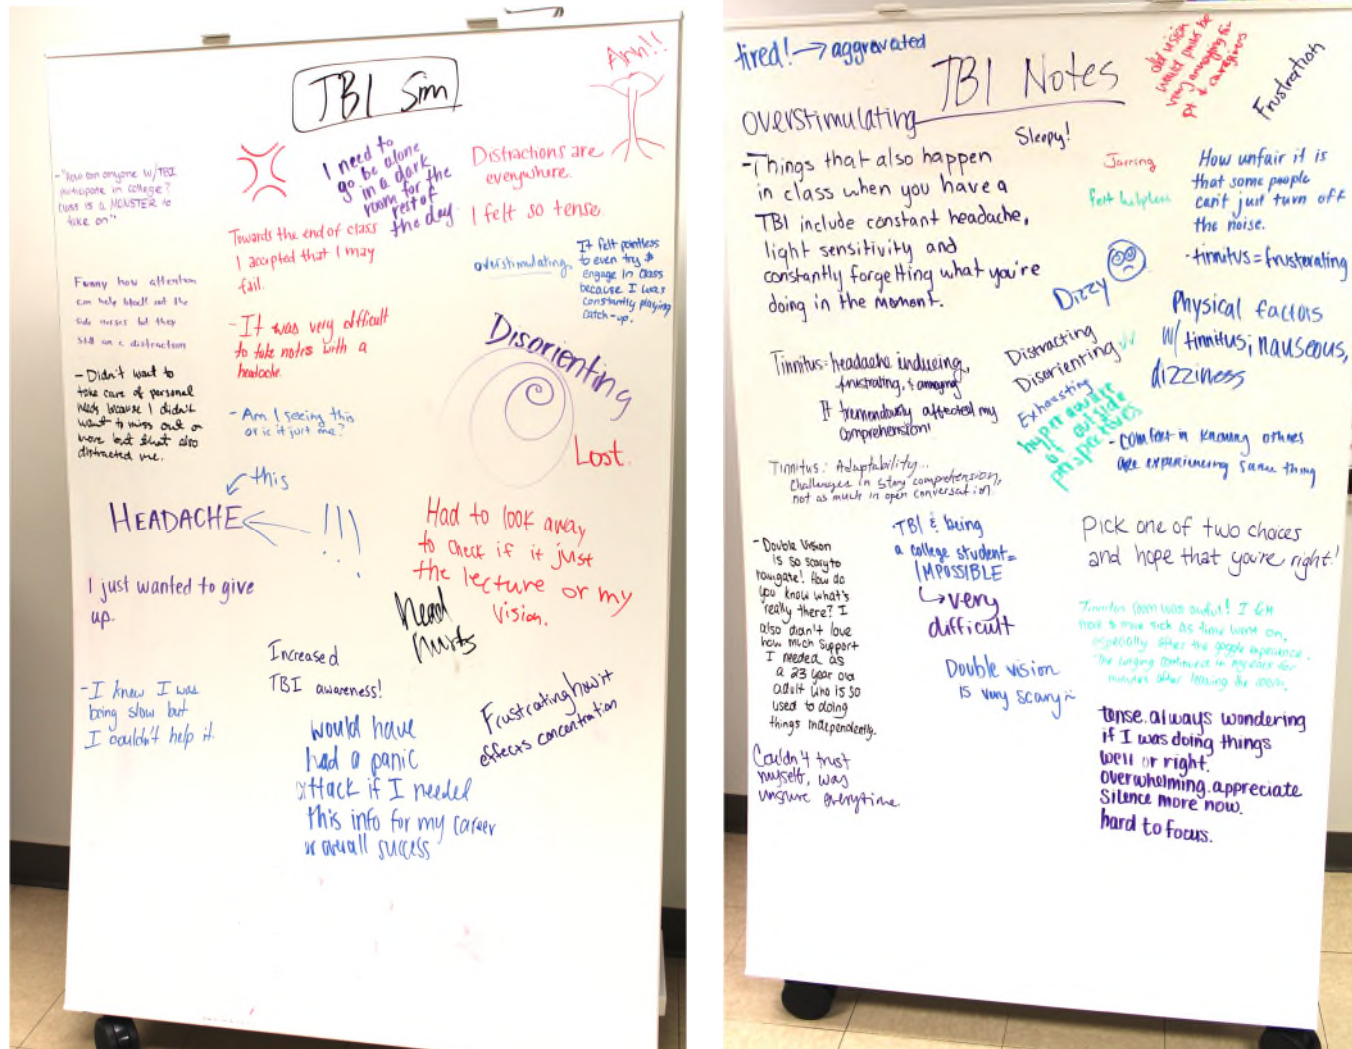 TBI Sim
Ahh!!
- "How can anyone w/TBI
participate in college?
Class is a MONSTER to
take on"
I need to
go be alone
in a dark
room for the
rest of
the day.
Distractions are
everywhere.
I felt so tense.
Towards the end of class
I accepted that I may
fail.
overstimulating
It felt pointless
to even try &
engage in class
because I was
constantly playing
catch-up.
Funny how attention
can help block out the
side noises but they
still are a distraction
- It was very difficult
to take notes with a
headache.
Disorienting
- Didn't want to
take care of personal
needs because I didn't
want to miss out on
more but that also
distracted me.
- Am I seeing this
or is it just me?
Lost.
this
HEADACHE
!!!
Had to look away
to check if it just
the lecture or my
vision.
I just wanted to give
up.
head
hurts
Increased
TBI awareness!
- I knew I was
being slow but
I couldn't help it.
Frustrating how it
effects concentration
would have
had a panic
attack if I needed
this info for my career
or overall success
tired! → aggravated
TBI Notes
vision
would be
very annoying for
pt & caregivers
Frustration
overstimulating
Sleepy!
- Things that also happen
in class when you have a
TBI include constant headache,
light sensitivity and
constantly forgetting what you're
doing in the moment.
Jarring
felt helpless
How unfair it is
that some people
can't just turn off
the noise.
- tinnitus = frusterating
Dizzy
Physical factors
w/ tinnitus; nauseous,
dizziness
Tinnitus = headache inducing,
frustrating, & annoying
It tremendously affected my
comprehension!
Distracting
Disorienting
Exhausting
hyperaware
of outside
perspectives
- comfort in knowing others
are experiencing same thing
Tinnitus: Adaptability...
Challenges in story comprehension,
not as much in open conversation.
- Double Vision
is so scary to
navigate! How do
you know what's
really there? I
also didn't love
how much support
I needed as
a 23 year old
adult who is so
used to doing
things independently.
TBI & being
a college student =
IMPOSSIBLE
↳ very
difficult
Pick one of two choices
and hope that you're right!
Tinnitus room was awful! I felt
more & more sick as time went on,
especially after the goggle experience.
The ringing continued in my ears for
minutes after leaving the room.
Double vision
is very scary
Couldn't trust
myself, was
unsure everytime
tense. always wondering
if I was doing things
well or right.
overwhelming. appreciate
silence more now.
hard to focus.